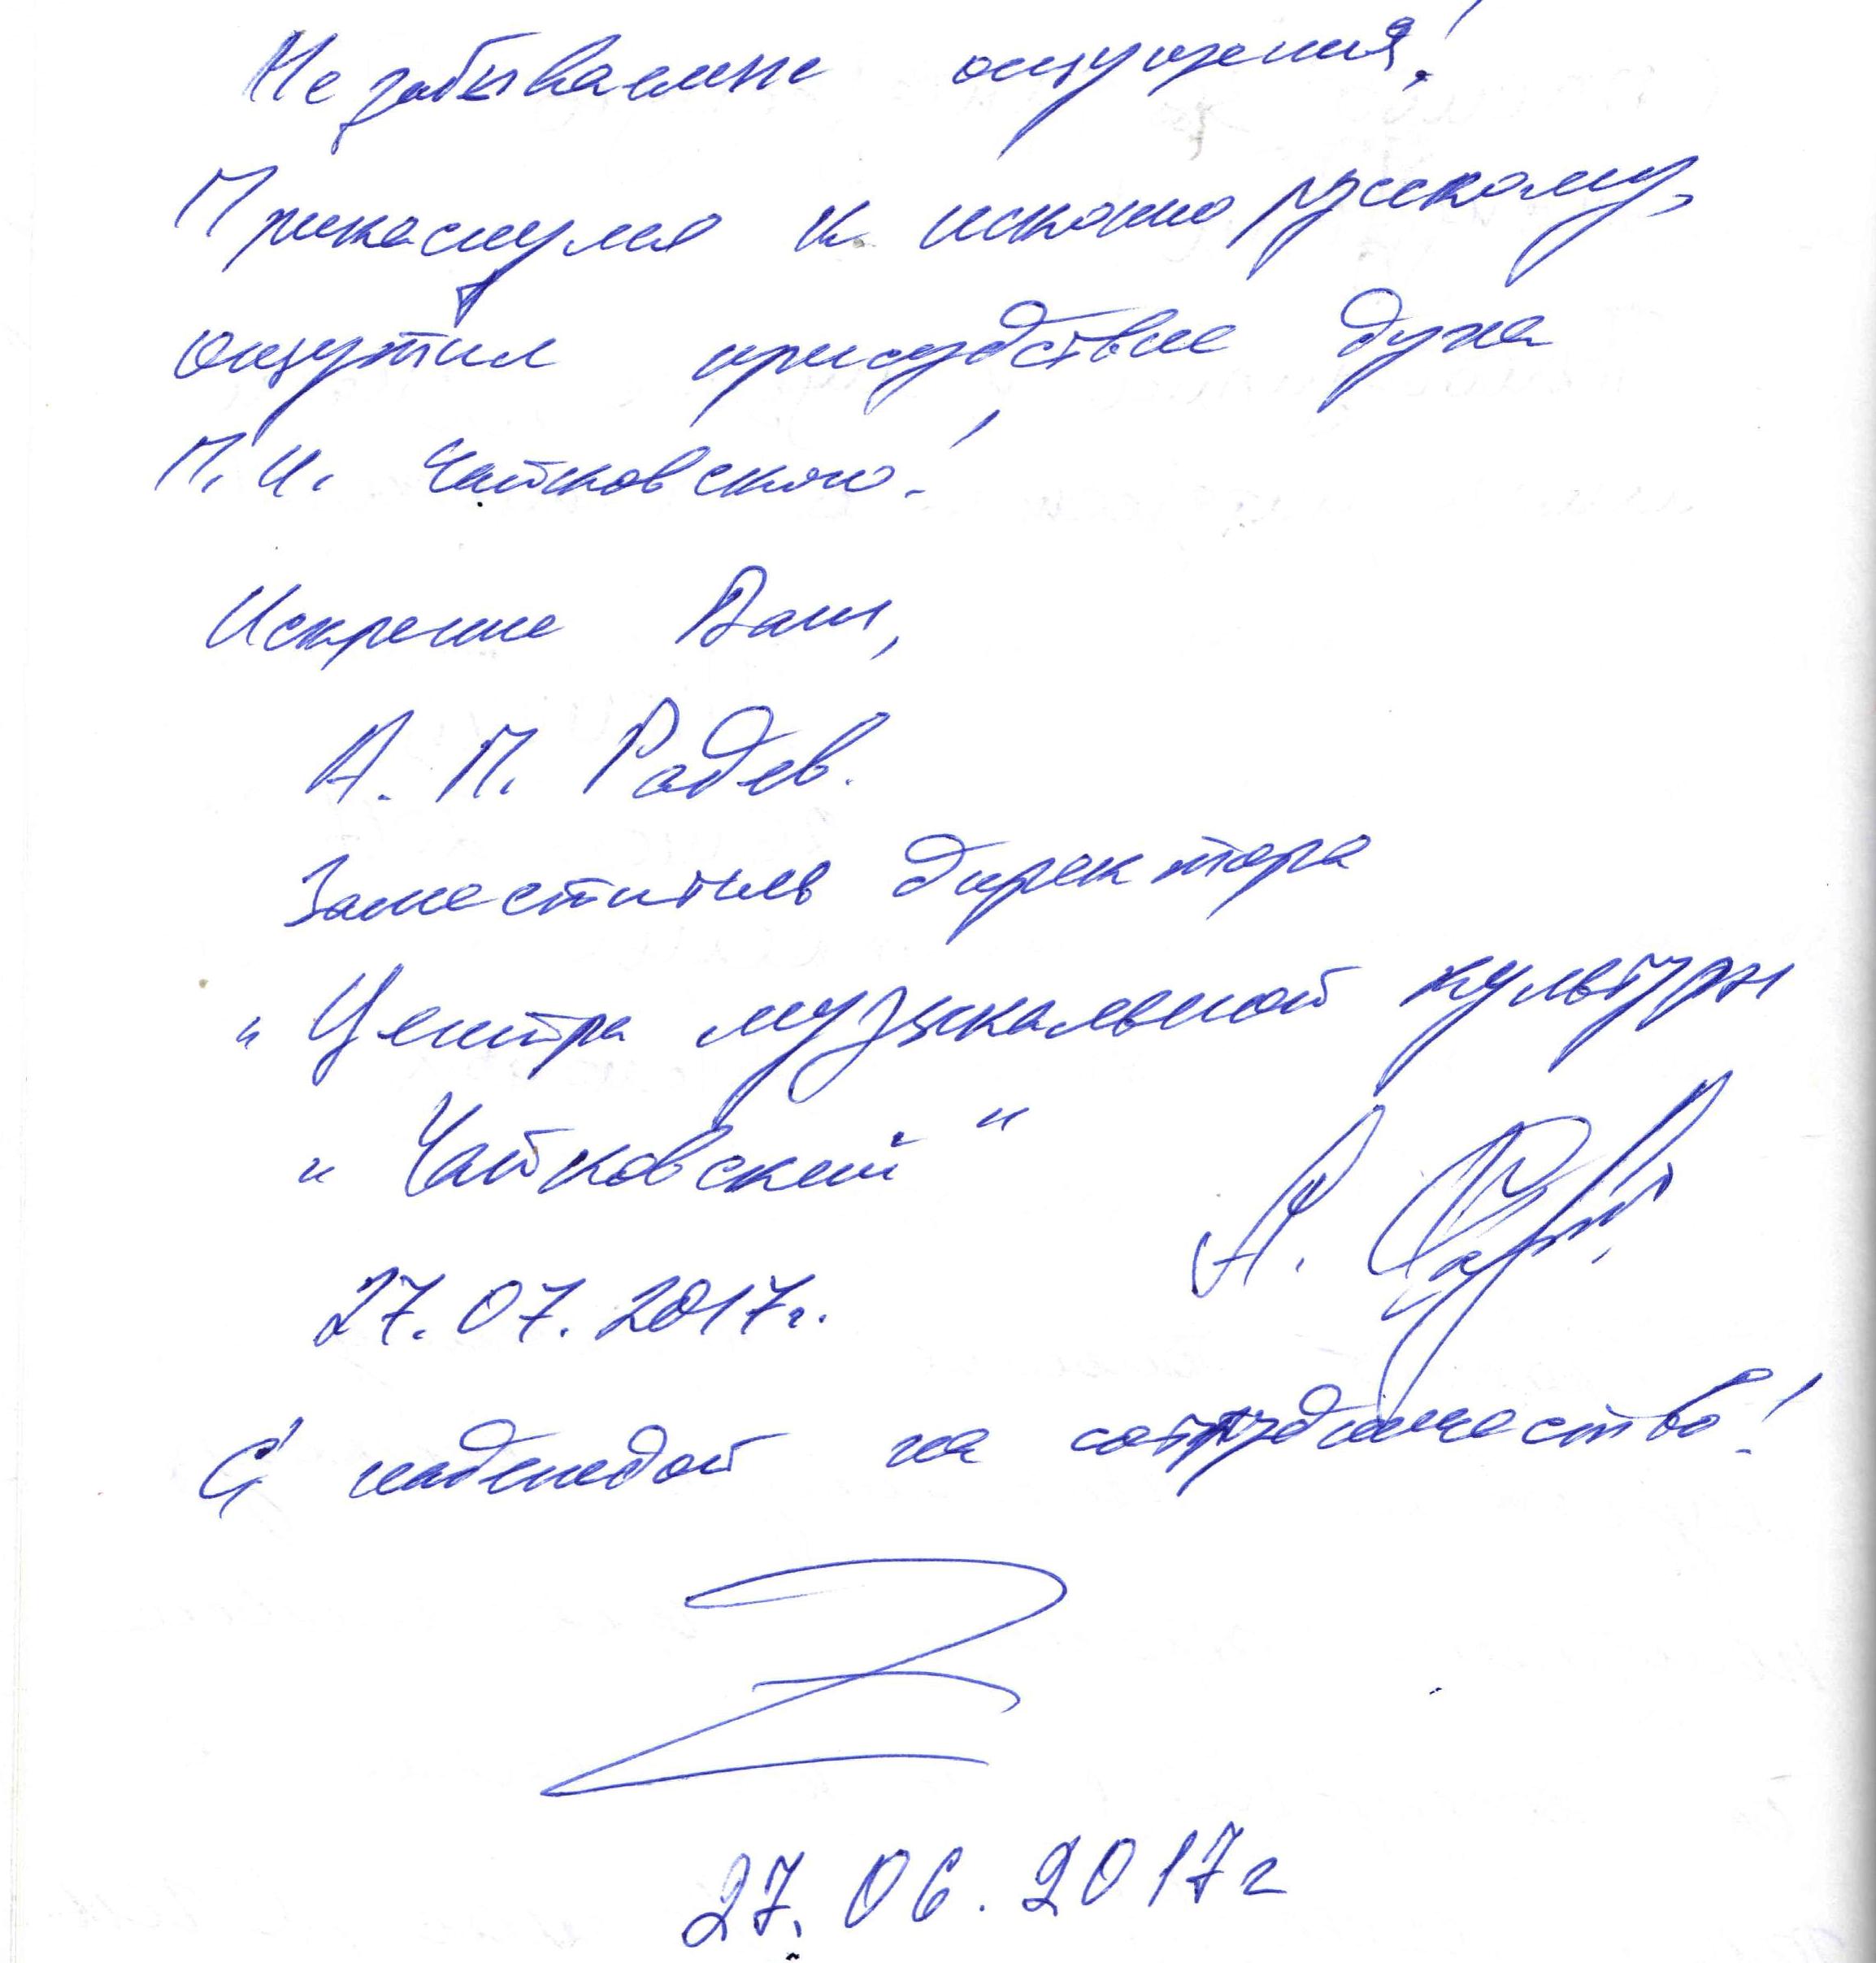 Незабываемые ощущения!
Прикаснулся к исконно русскому,
ощутил присудствие духа
П.И. Чайковского!
Искренне Ваш,
А. П. Радев.
Заместитель директора
"Центра музыкальной культуры
"Чайковский"
27.07.2017г.
С надеждой на сотрудничество!
27.06.2017г